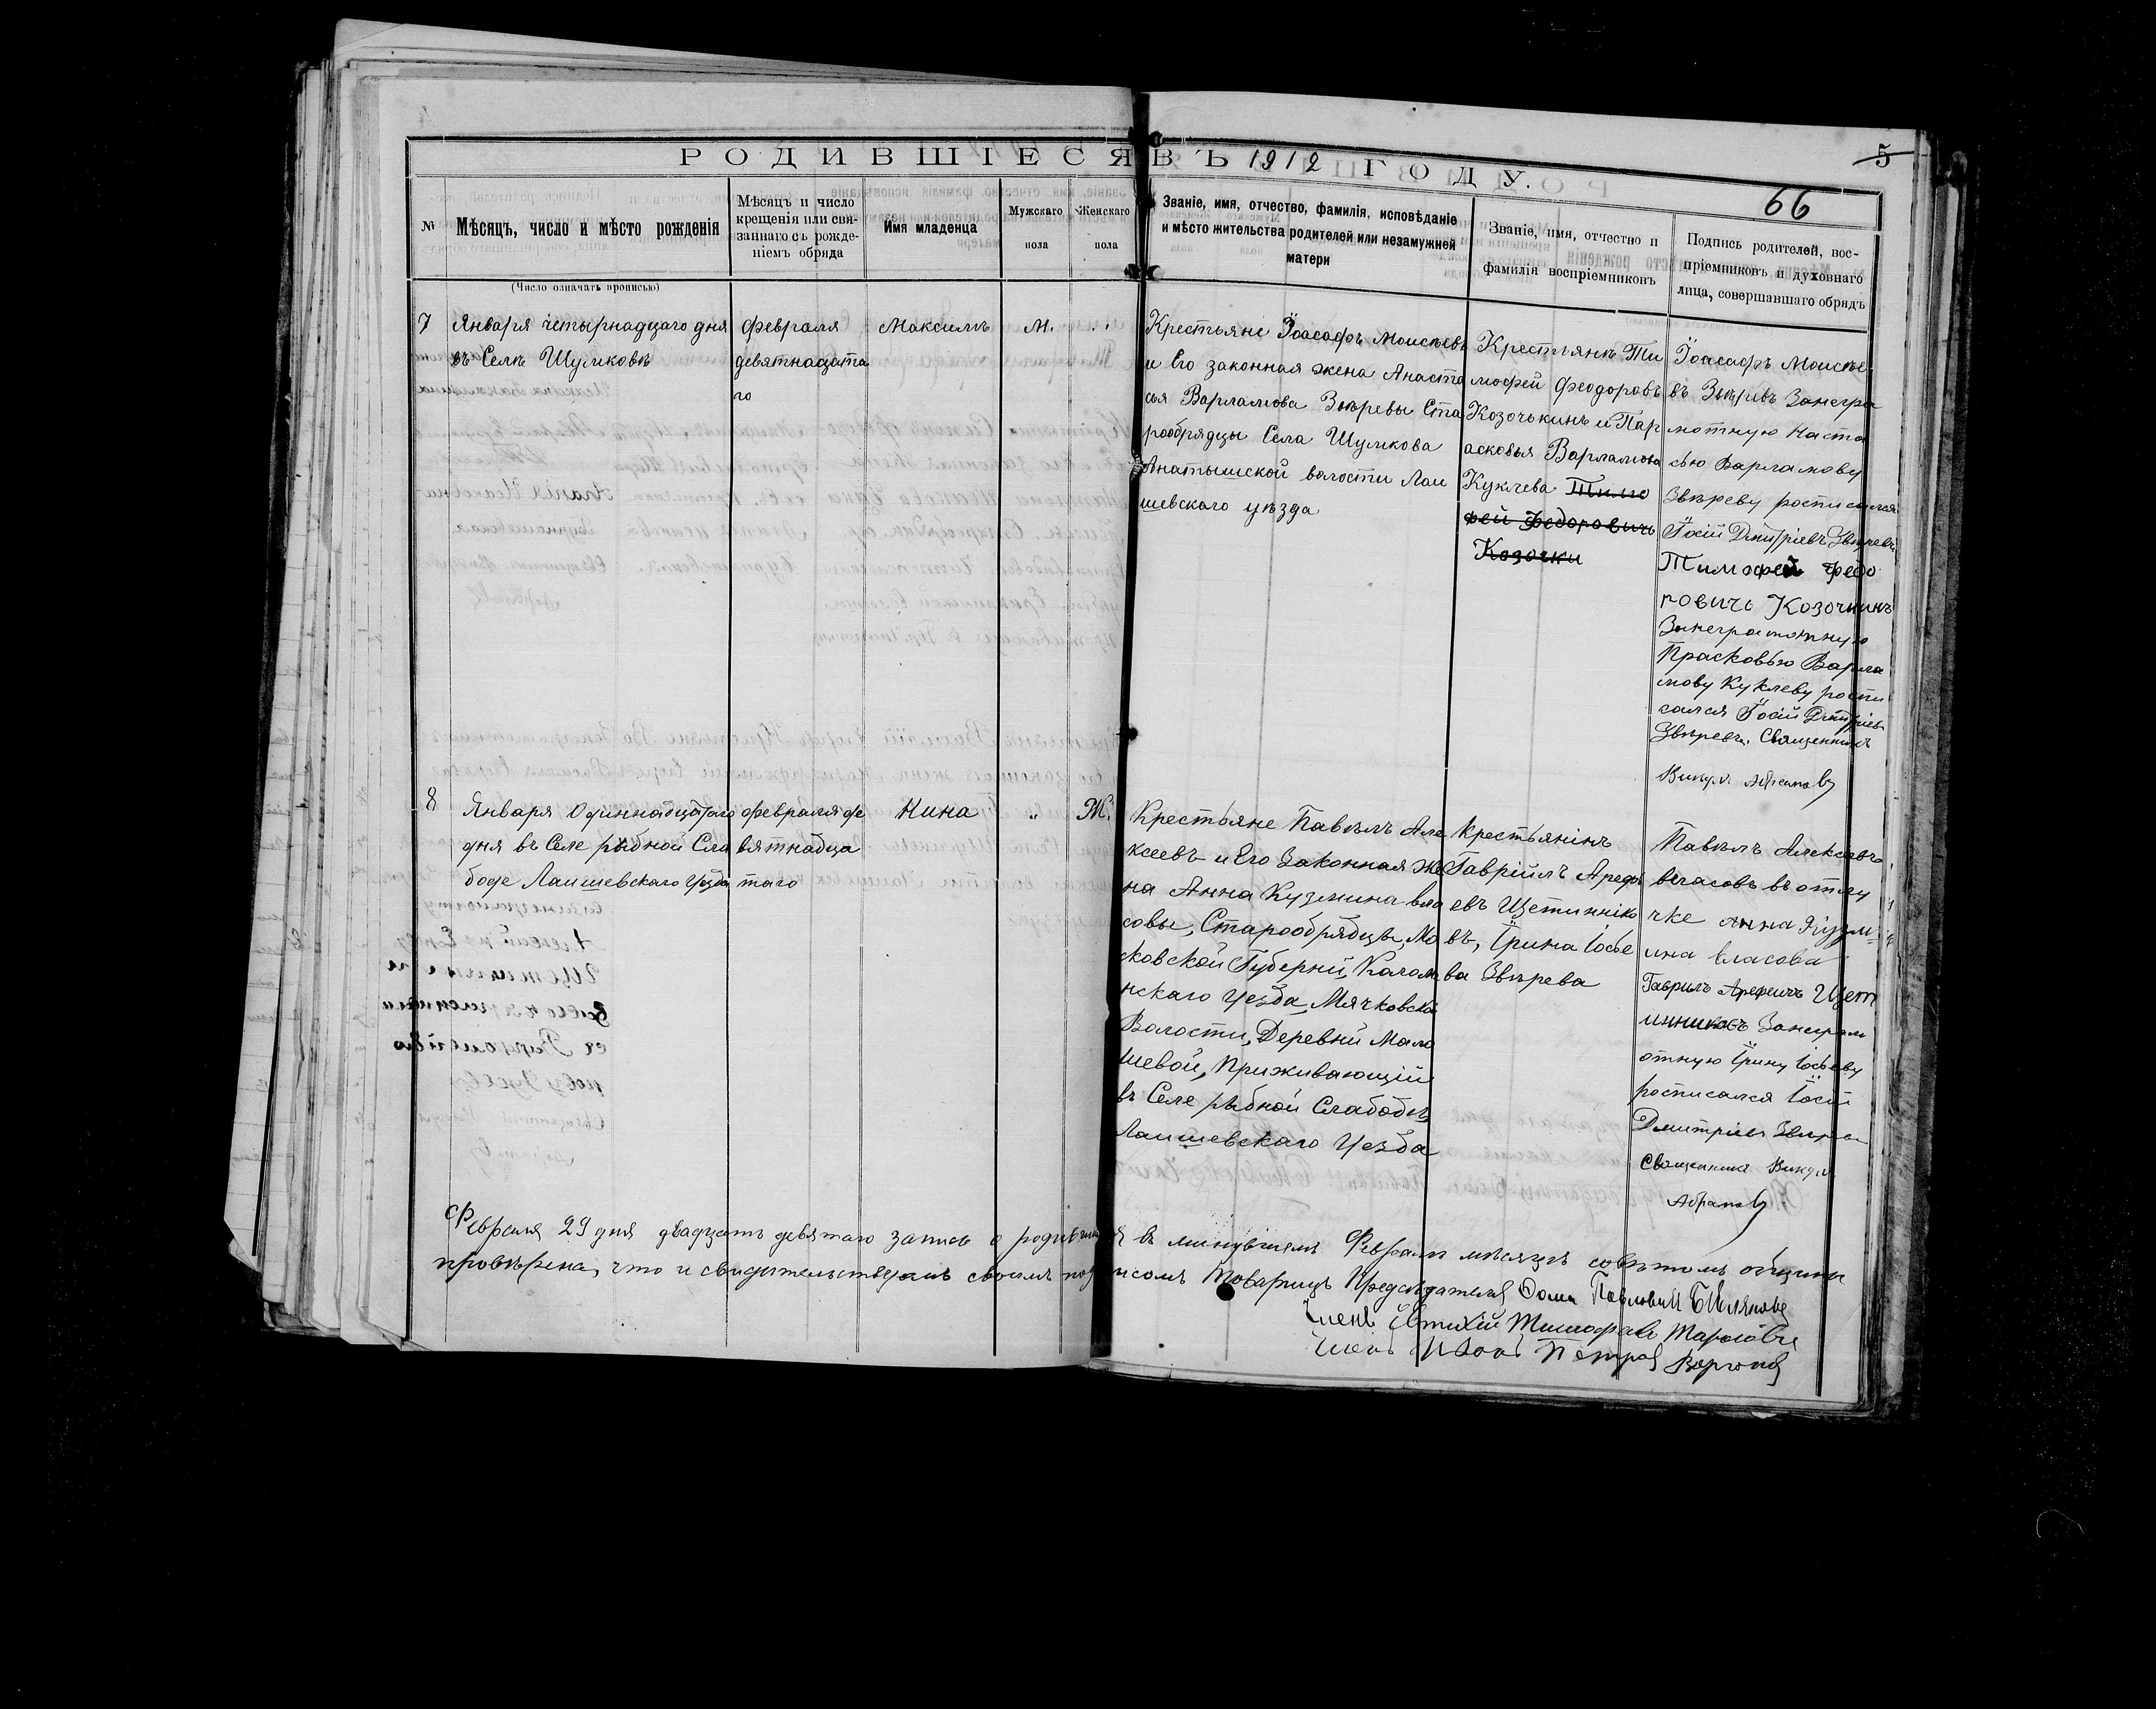 РОДИВШІЕСЯ ВЪ 1912 ГОДУ.
5
66
№
Мѣсяцъ, число и мѣсто рожденія
(Число означать прописью)
Мѣсяцъ и число
крещенія или свя-
заннаго съ рожде-
ніемъ обряда
Имя младенца
Мужскаго
пола
Женскаго
пола
Званіе, имя, отчество, фамилія, исповѣданіе
и мѣсто жительства родителей или незамужней
матери
Званіе, имя, отчество и
фамилія воспріемниковъ
Подпись родителей, вос-
пріемниковъ и духовнаго
лица, совершавшаго обрядъ
7
Января четырнадцаго дня
въ Селѣ Шумковѣ
февраля
девятнацата
го
Максимъ
М.
Крестьяне Іоасафъ Моисѣевъ
и Его законная жена Анаста
сья Варламова Звѣревы Ста
рообрядцы Села Шумкова
Анатышской волости Лаи
шевскаго уѣзда
Крестьянѣ Ти
мофей Феодоровъ
Козочькинъ и Пар
асковья Варламова
Куклева Тимо
фей Федоровичъ
Козочки
Іоасафъ Моисѣе
въ Звѣревъ Занегра
мотную Наста
сью Варламову
Звѣреву росписался
Іосій Дмитріевъ Звѣревъ
Тимофей Федо
ровичь Козочкинъ
Занеграмотную
Прасковью Варла
мову Куклеву роспи
сался Іосій Дмитріевъ
Звѣревъ. Священникъ
Викул. Абрамовъ
8
Января Одиннадцатаго
дня въ Селе рыбной Сла
боде Лаишевскаго Уезда
февраля де
вятнадца
таго
Нина
„
Ж.
Крестьяне Павѣлъ Але
ксеевъ и Его Законная Же
на Анна Кузмина вла
совы, Старообрядцы, Мо
сковской Губерніи, Калом
нскаго Уезда, Мячковскай
Валости, Деревни Мало
шевой, Приживающій
въ Селе рыбной Слабодѣ
Лаишевскаго Уезда
Крестьянінъ
Гаврійлъ Арефи
евъ Щетинніко
въ, Ірина Іосье
ва Звѣрева
Павѣлъ Алексѣвъ
власовъ въ отлу
чке Анна Кузм
ина власова
Гаврилъ Арефичъ Щет
инниковъ Занеграм
отную Ірину Іосьеву
росписался Іосій
Дмитріевъ Звѣрев
Священникъ Викул.
Абрамовъ
Февраля 29 дня двадцать девятаго запись о родившихся въ минувшемъ Февралѣ мѣсяцѣ совѣтомъ общины
провѣрена, что и свидѣтельствуемъ своимъ подписомъ Товарищъ Предсѣдателя Фома Павловъ
Членъ Евтихій Тимофѣевъ
Членъ Иванъ Петровъ